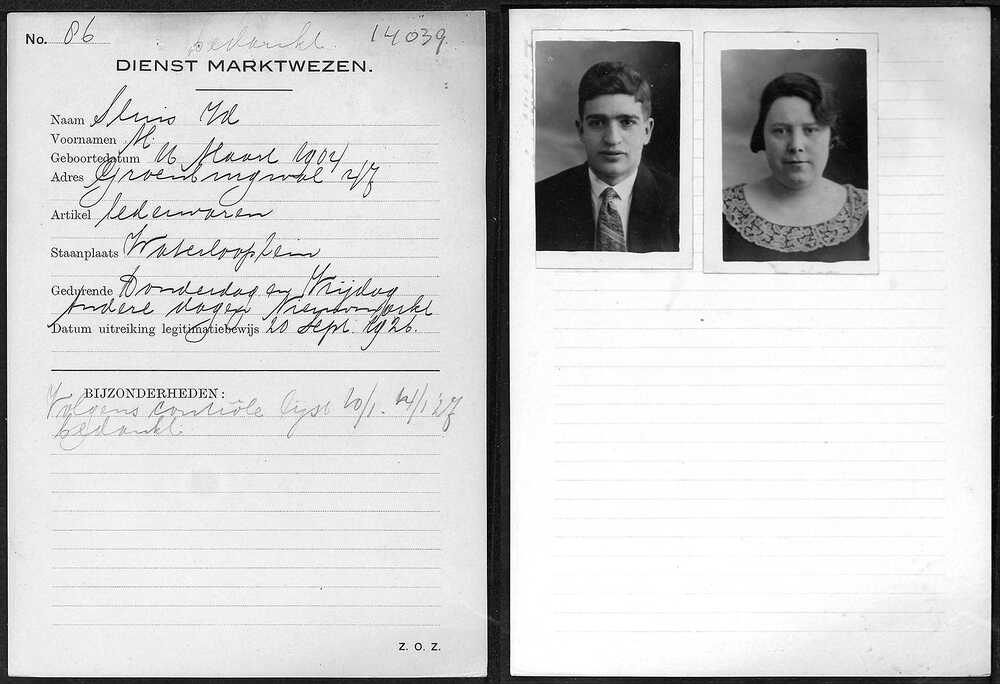 No. 86 bedankt 14039
DIENST MARKTWEZEN.
Naam Sluis
Voornamen M.
Geboortedatum Maart 1904
Adres
Artikel lederwaren
Staanplaats Waterlooplein
Gedurende Donderdag en Vrijdag
Andere dagen Nieuwmarkt
Datum uitreiking legitimatiebewijs 20 Sept. 1926.
BIJZONDERHEDEN:
Volgens contrôle lijst 10/1 - '27
bedankt.
Z. O. Z.